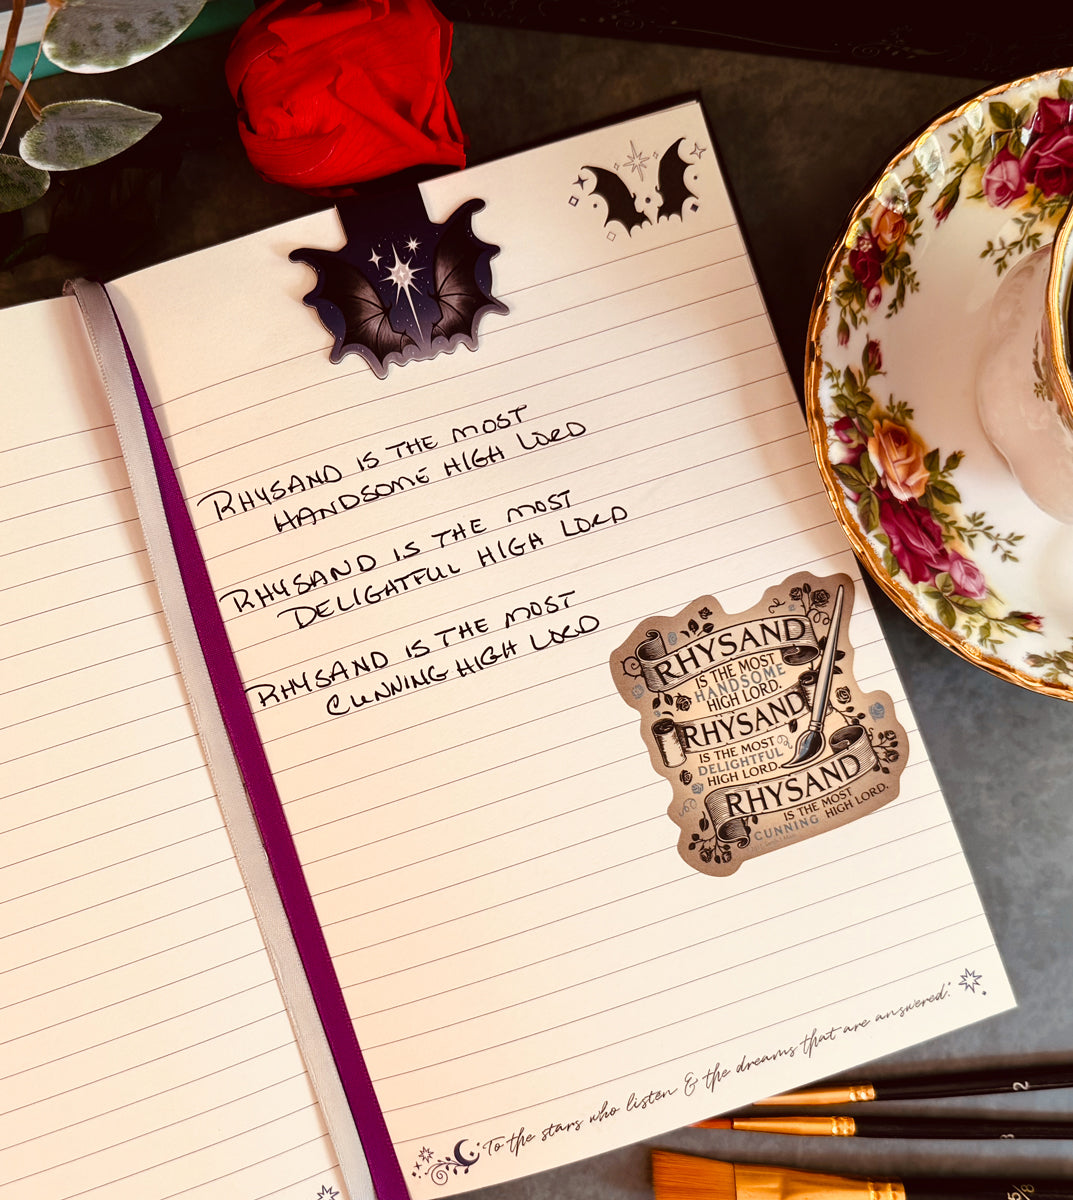 RHYSAND IS THE MOST
HANDSOME HIGH LORD
RHYSAND IS THE MOST
DELIGHTFUL HIGH LORD
RHYSAND IS THE MOST
CUNNING HIGH LORD
RHYSAND
IS THE MOST
HANDSOME
HIGH LORD.
RHYSAND
IS THE MOST
DELIGHTFUL
HIGH LORD.
RHYSAND
IS THE MOST
CUNNING HIGH LORD.
To the stars who listen & the dreams that are answered.
2
8
5/8